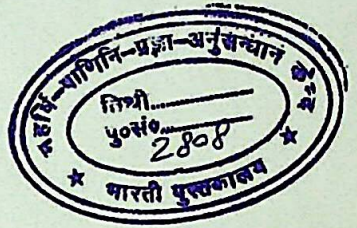 महर्षि-पाणिनि-प्रज्ञा-अनुसन्धान केन्द्र
तिथी..............
पु०सं०..............
2808
★ भारती पुस्तकालय ★